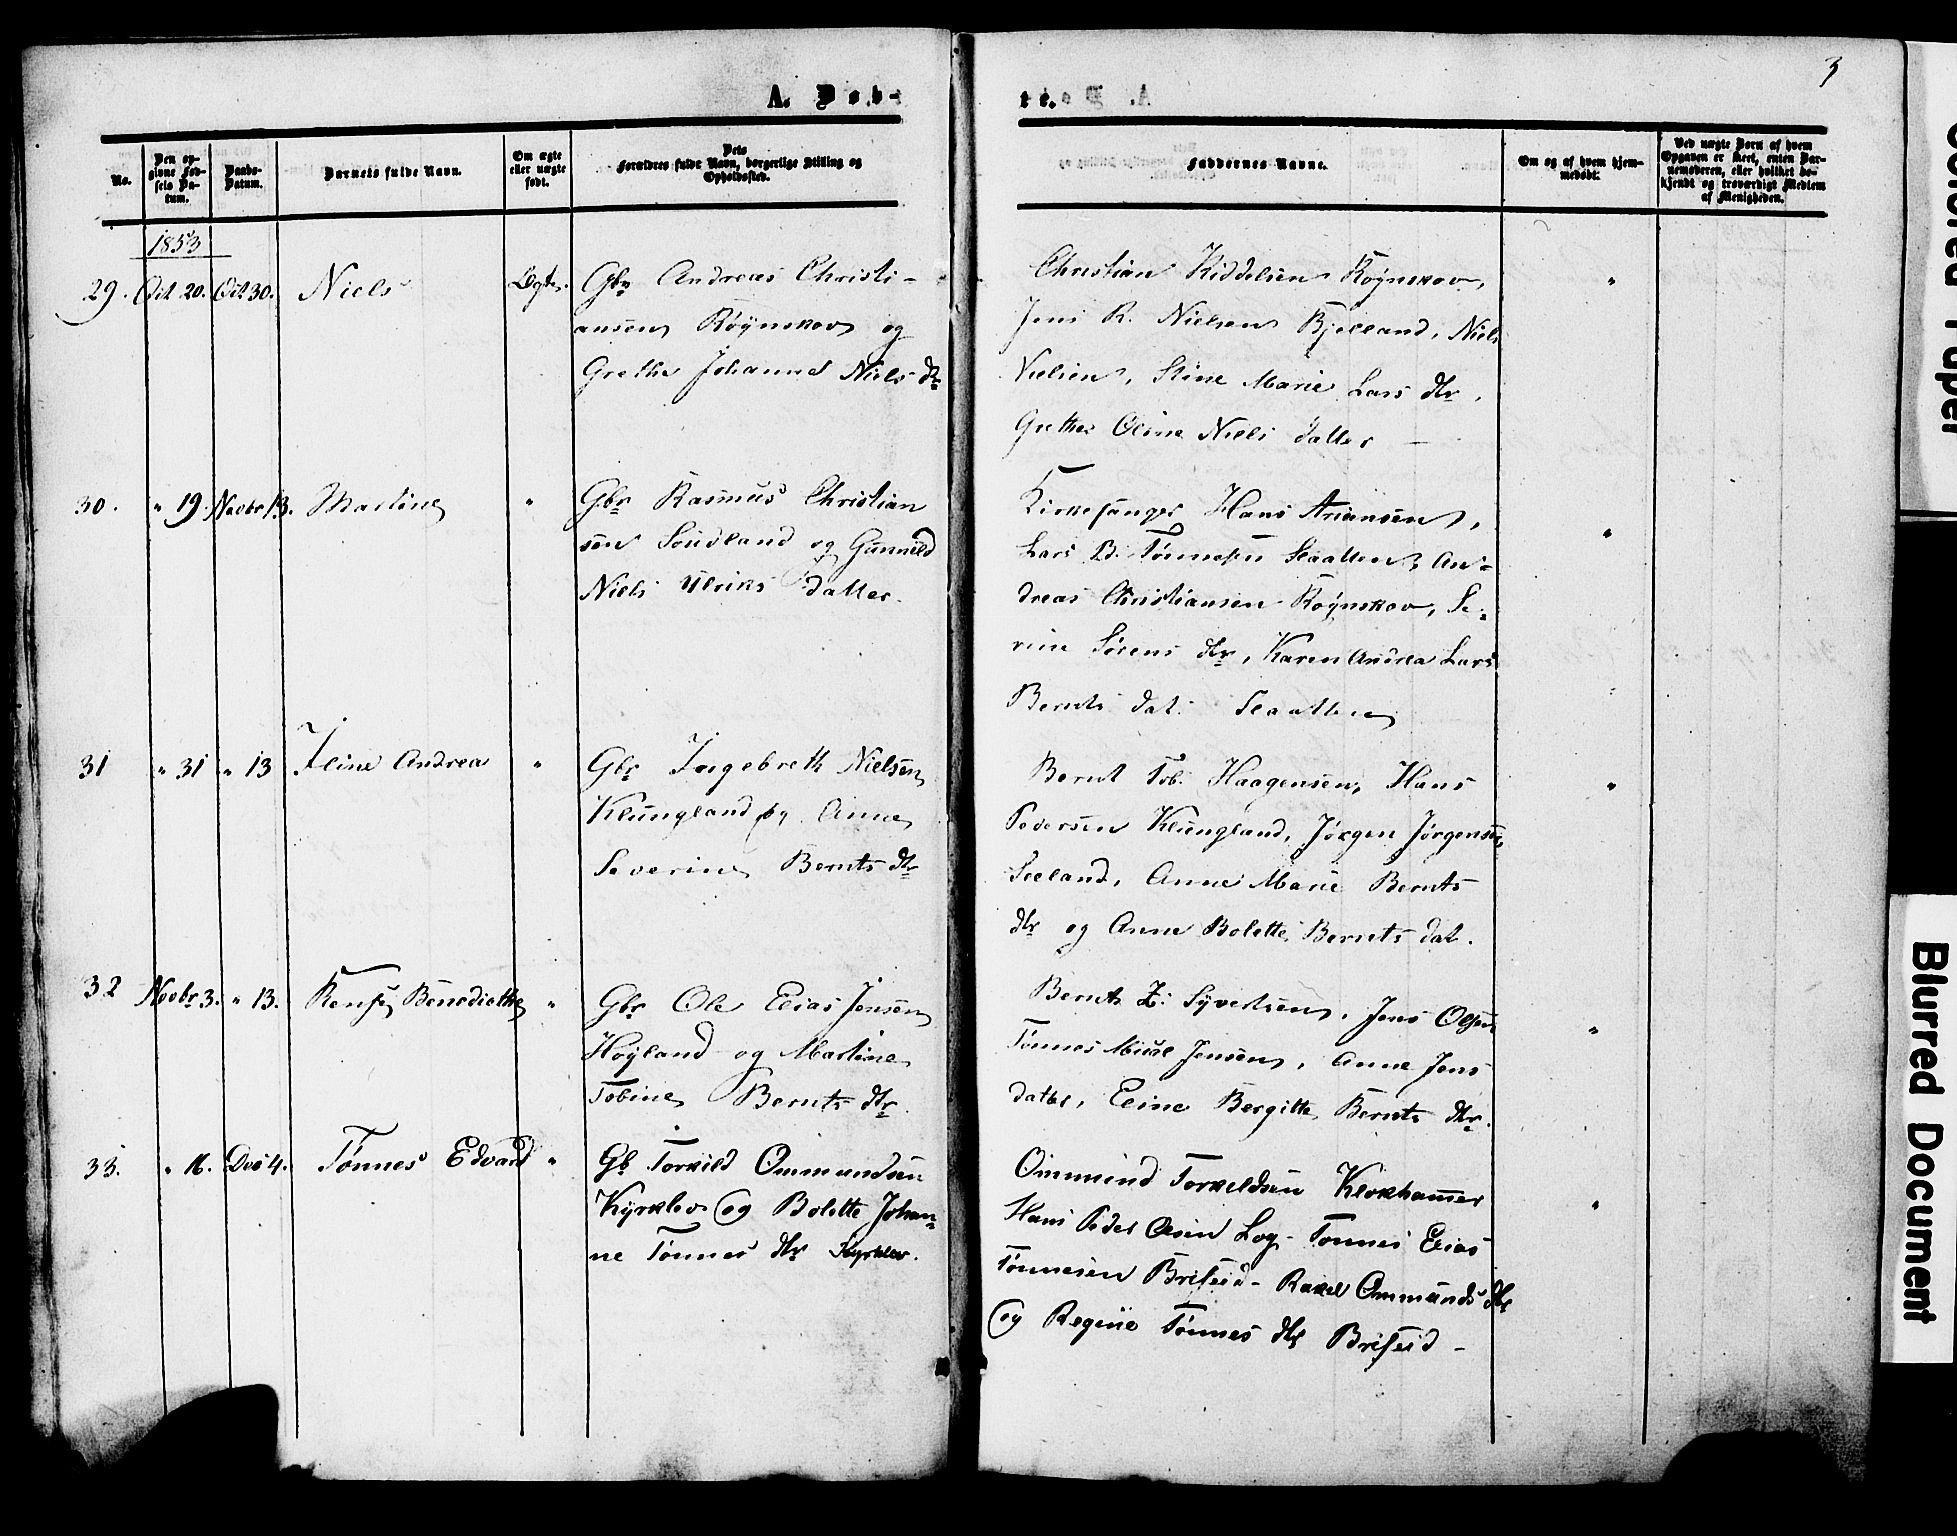 3
A. Døb-
te.
No.
Den op-
givne Fød-
sels Da-
tum.
Daabs-
Datum.
Barnets fulde Navn.
Om ægte
eller uægte
født.
Dets
Forældres fulde Navn, borgerlige Stilling og
Opholdssted.
Faddernes Navne.
Om og af hvem hjem-
medøbt.
Ved uægte Børn af hvem
Opgaven er skeet, enten Bar-
nemoderen, eller hvilket be-
kjendt og troværdigt Medlem
af Menigheden.
1853
29. Oct 20. Oct 30. Niels Ægte.
Gbr Andreas Christi-
ansen Røynskov og
Grethe Johanne Niels dtr
Christian Kiddelsen Røynskov,
Jens R. Nielsen Bjelland, Niels
Nielsen, Stine Marie Lars dtr,
Grethe Oline Niels datter -
30. " 19. Novbr 13. Martine "
Gbr Rasmus Christian
sen Soudland og Gunnild
Niels Ulriks datter.
Kirkesanger Hans Ariansen,
Lars B. Tønnesen Slaatten, An-
dreas Christiansen Røynskov, Se-
rine Sørens dtr, Karen Andrea Lars
Bernts dat: Slaatten
"
31 " 31 " 13 Iline Andrea "
Gbr Ingebreth Nielsen
Klungland og Anne
Severine Bernts dtr
Bernt Tob. Haagensen, Hans
Pedersen Klungland, Jørgen Jørgensen
Seeland, Anne Marie Bernts
dtr og Anne Bolette Bernts dat.
"
32 Novbr 3. " 13. Rensje Benedicthe "
Gbr Ole Elias Jensen
Høyland og Martine
Tobine Bernts dtr.
Bernt Z: Syvertsen, Jens Olsen
Tønnes Jensen, Anne Jens
datter, Eline Bergitte Bernts dtr.
"
33. " 16. Dec 4. Tønnes Edvard "
Gb Torkild Ommundsen
Kyrklev og Bolette Johan-
ne Tønnes dtr Kyrklev.
Ommund Torkeldsen Klokhammer
Hans Peder Olsen Log - Tønnes Elias
Tønnesen Brifeid - Rakel Ommunds dtr
og Regine Tønnes dtr Brifeid -
"
Colored Paper
Blurred Document